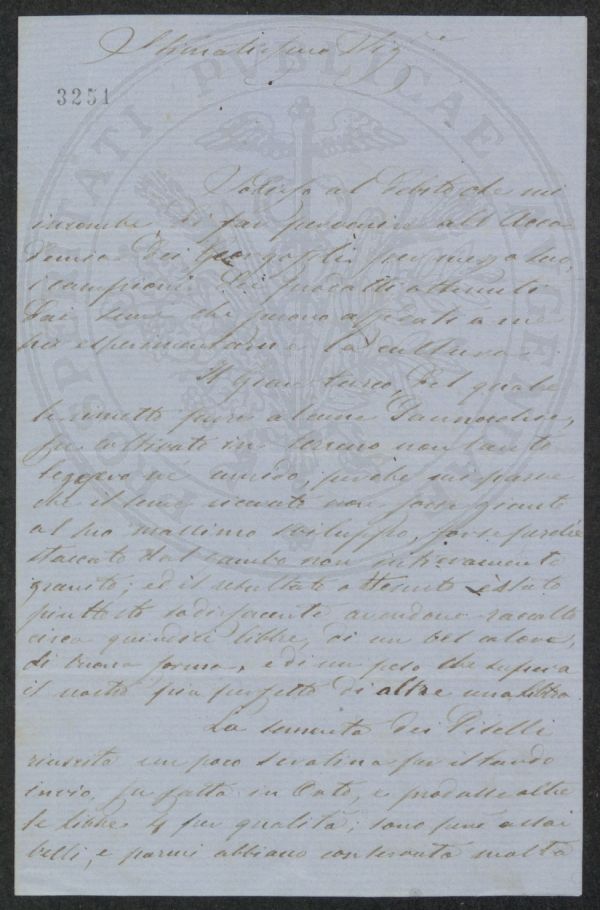 Stimatissimo Sig.re
3251
PROSPERITATI PUBLICAE AUGENDAE
Sodisfo al debito che mi
incombe di far pervenire all'Acca
demia dei Georgofili per mezzo suo,
i campioni dei prodotti ottenuti
dai semi che furono affidati a me
per esperimentarne la cultura.
Il Gran turco, del quale
le rimetto pure alcune
fu coltivato in terreno non tanto
leggero nè umido, perchè mi parve
che il seme ricevuto non fosse giunto
al suo massimo sviluppo, forse perchè
staccato dal gambo non intieramente
granito; ed il resultato ottenuto è stato
piuttosto sodisfacente avendone raccolte
circa quindici libbre, di un bel colore,
di buona forma, e di un peso che supera
il nostro più perfetto di oltre una libbra
La sementa dei Piselli
riuscita un poco serotina per il tardo
invio, fu fatta in e produsse oltre
le libbre 4 per qualità; sono però assai
belli, e parmi abbiano conservata molta